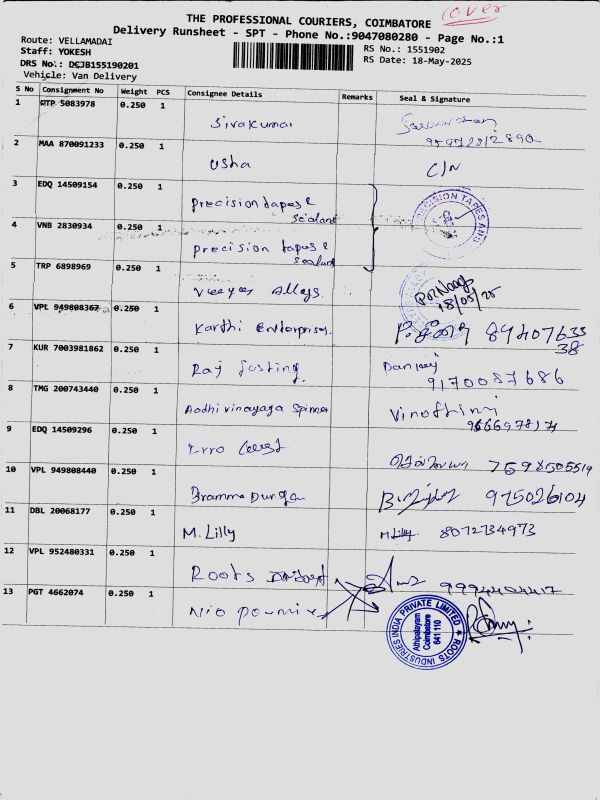 cover
THE PROFESSIONAL COURIERS, COIMBATORE
Delivery Runsheet - SPT - Phone No.:9047080280 - Page No.:1
Route: VELLAMADAI
Staff: YOKESH
DRS No.: DCJB155190201
Vehicle: Van Delivery
RS No.: 1551902
RS Date: 18-May-2025
S No Consignment No Weight PCS Consignee Details Remarks Seal & Signature
1 ATP 5083978 0.250 1
Sivakumar
2 MAA 870091233 0.250 1
Usha C/N
3 EDQ 14509154 0.250 1
precision tapes &
sealant
PRECISION TAPES AND
4 VNB 2830934 0.250 1
precision tapes &
sealant
5 TRP 6898969 0.250 1
Alloys.
18/05/25
6 VPL 949808367 0.250 1
Karthi Enterprises 8940763338
7 KUR 7003981862 0.250 1
Raj
9170087686
8 TMG 200743440 0.250 1
Aadhi vinayaga Spinner Vinothini
9 EDQ 14509296 0.250 1
7598505519
10 VPL 949808440 0.250 1
Bramma Durga 975026104
11 DBL 20068177 0.250 1
M.Lilly M.Lilly 8072734973
12 VPL 952480331 0.250 1
Roots
13 PGT 4662074 0.250 1
ROOTS INDUSTRIES INDIA PRIVATE LIMITED
Athipalayam
Coimbatore
641 110